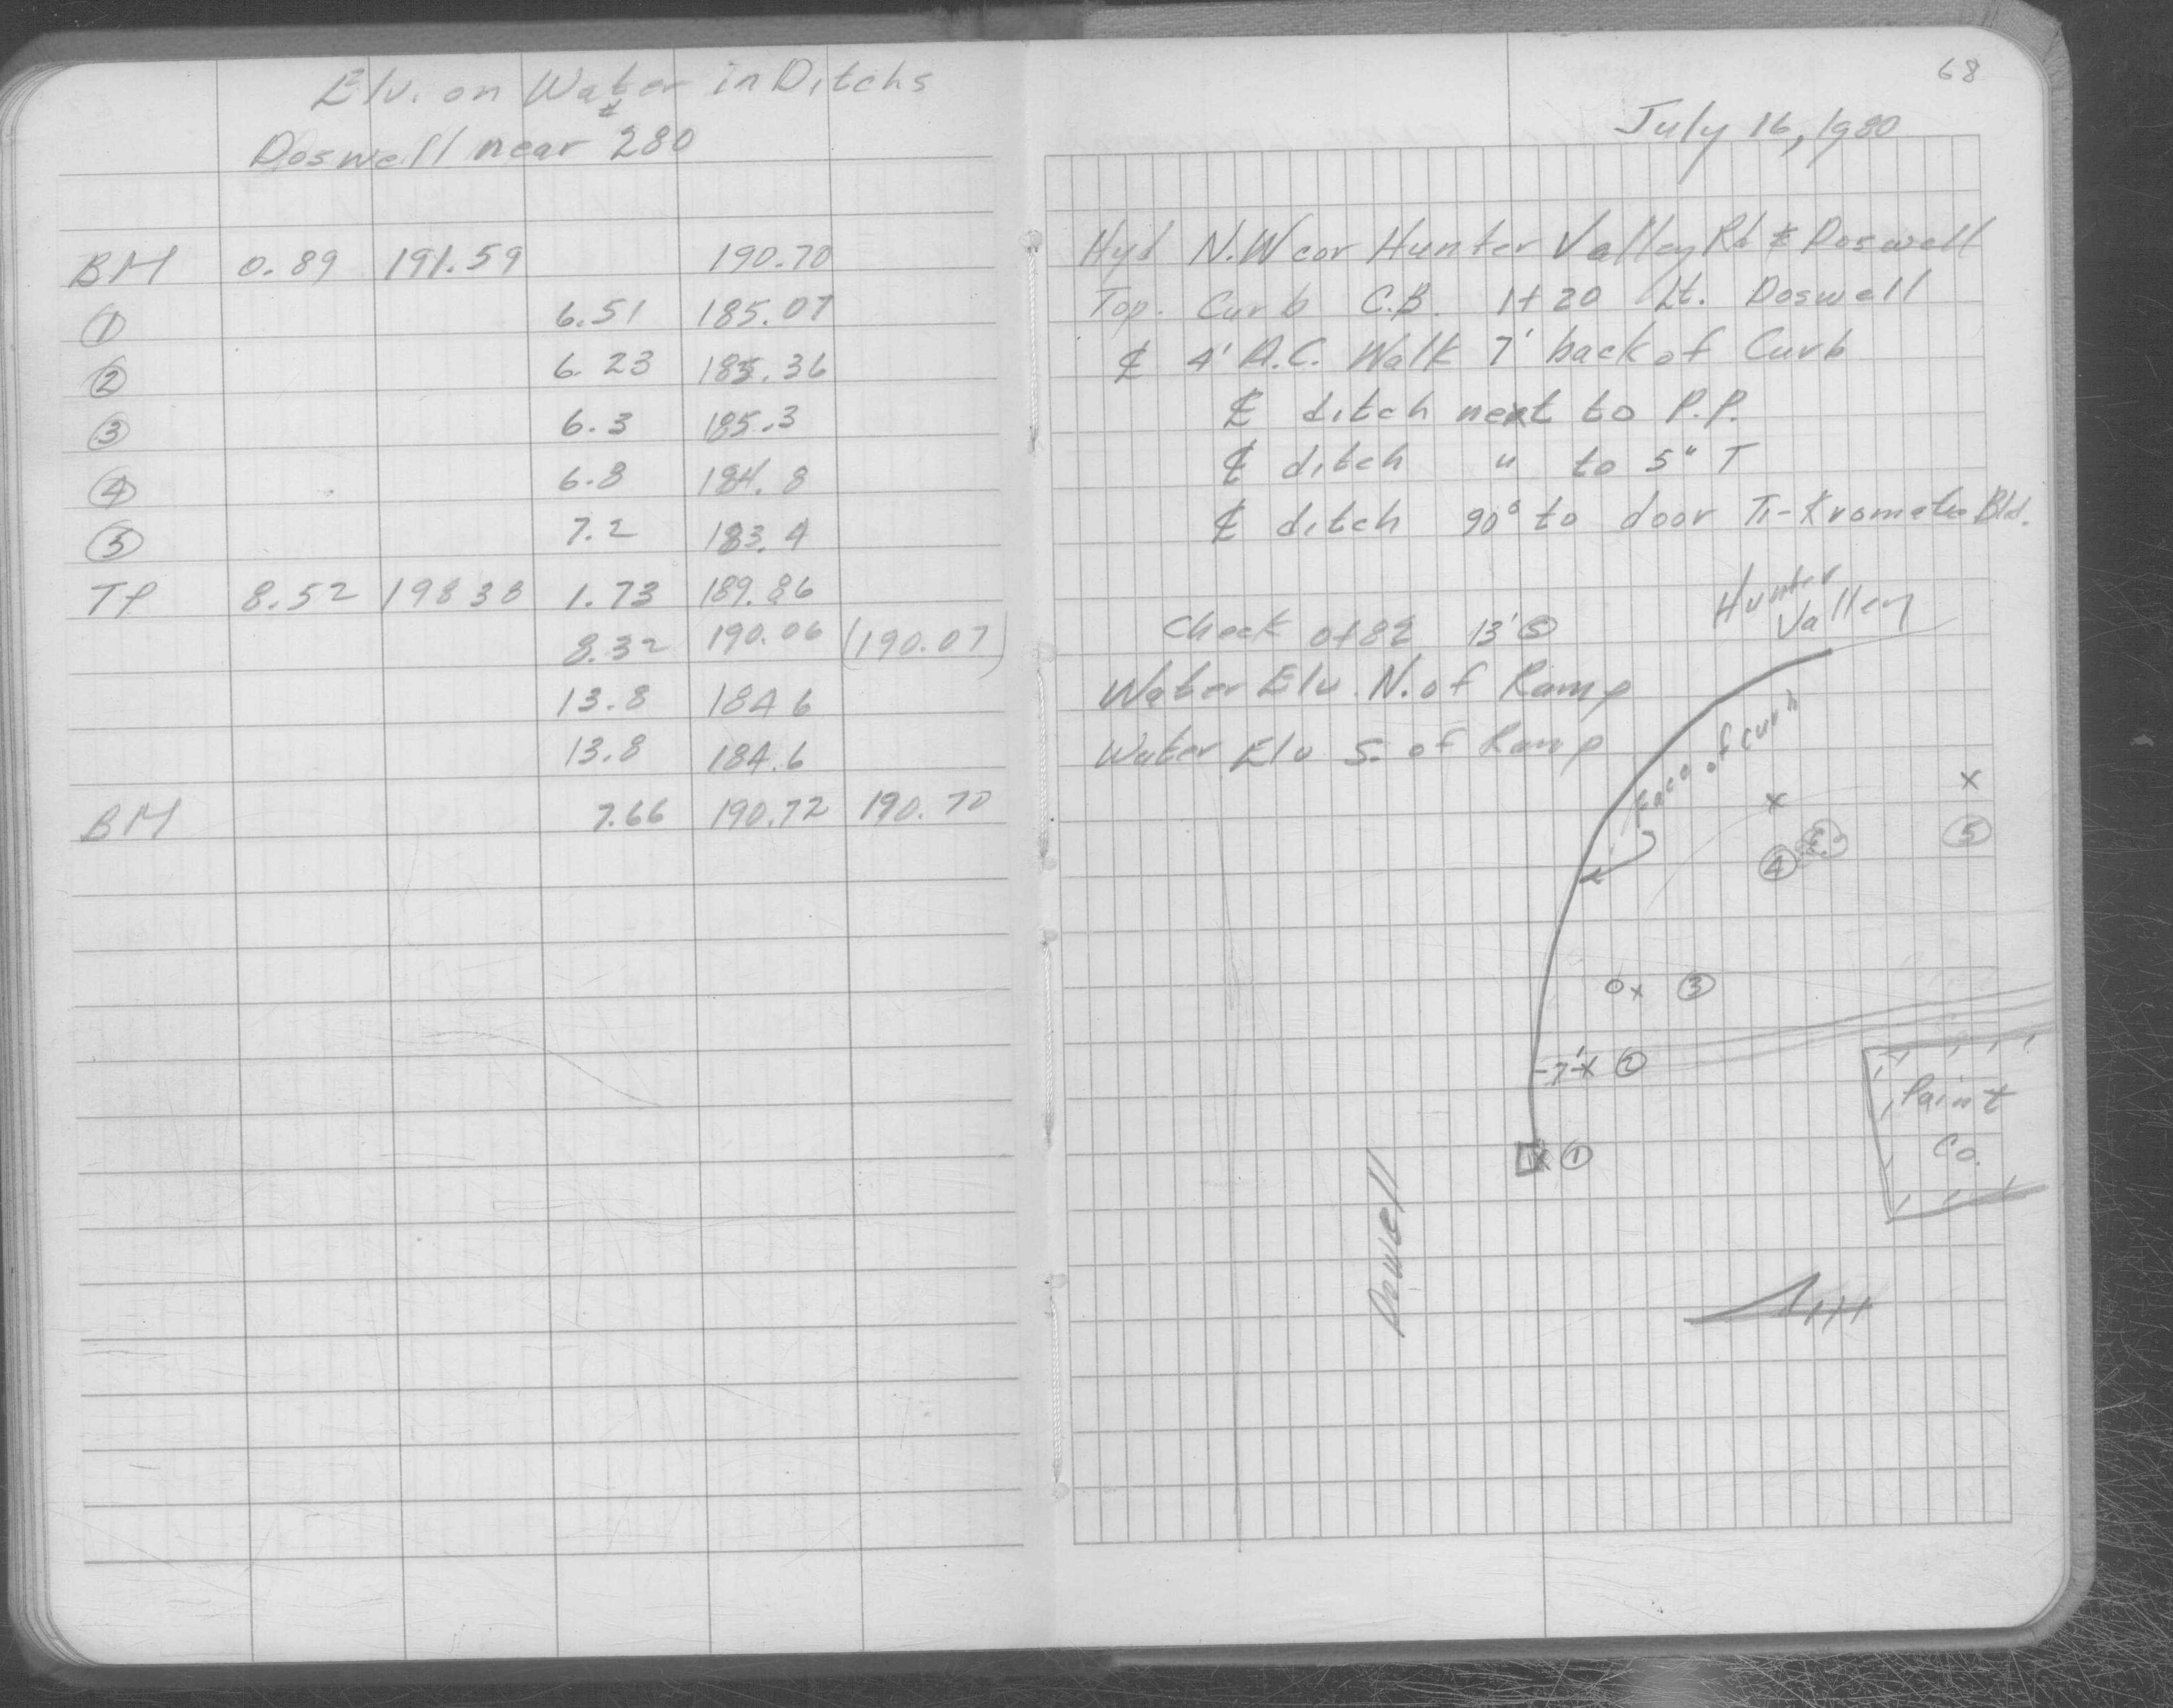 Elv. on Water in Ditchs
Doswell near #280
BM 0.89 191.59 190.70
① 6.51 185.07
② 6.23 185.36
③ 6.3 185.3
④ 6.8 184.8
⑤ 7.2 183.4
TP 8.52 198 38 1.73 189.86
8.32 190.06 (190.07)
13.8 184 6
13.8 184.6
BM 7.66 190.72 190.70
68
July 16, 1980
Hyd N.W cor Hunter Valley Rd & Doswell
Top. Curb C.B. 1+20 Lt. Doswell
℄ 4' A.C. Walk 7' back of Curb
℄ ditch next to P.P.
℄ ditch " to 5" T
℄ ditch 90° to door Bld.
Check 0+82 13' Ⓢ
Water Elv. N. of Ramp
Water Elv S. of Ramp
Hunter
Valley
Face of curb
④
⑤
③
7' ②
①
Paint
Co.
Doswell